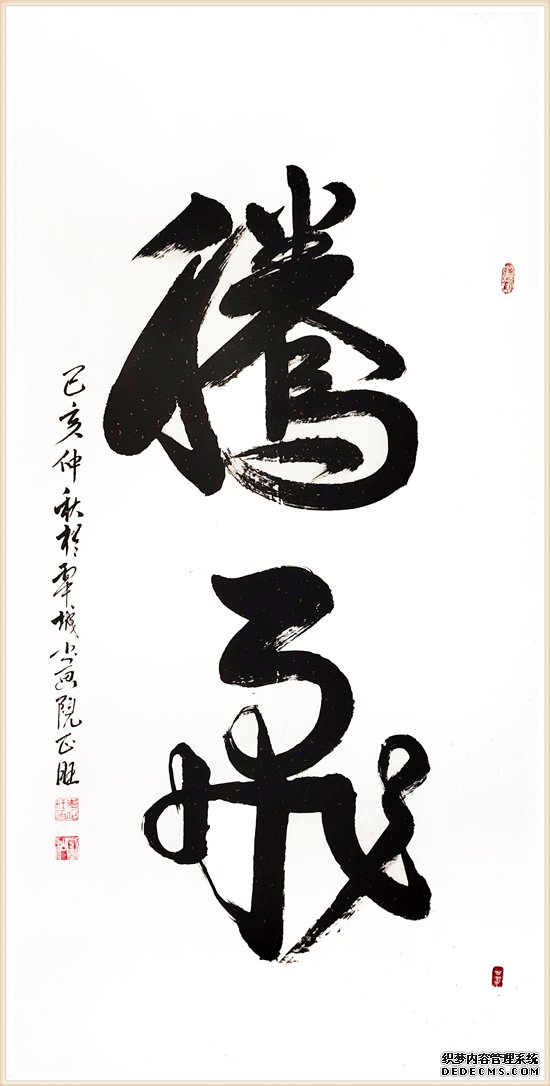 腾飞
己亥仲秋於覃城书画院正旺
织梦内容管理系统
DEDECMS.COM